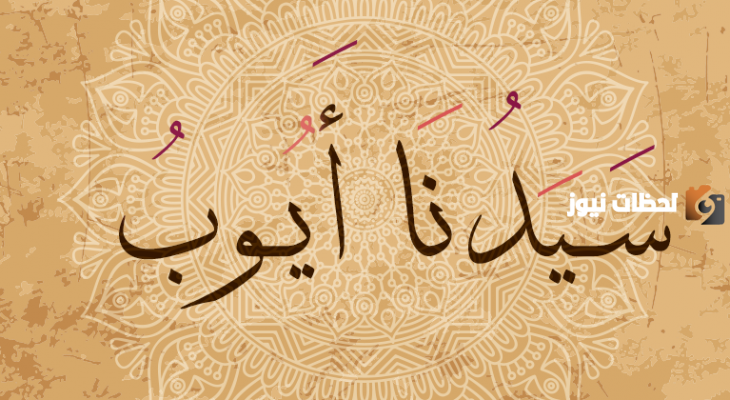 سَيَدُنَا أَيُوبُ
لحظات نيوز